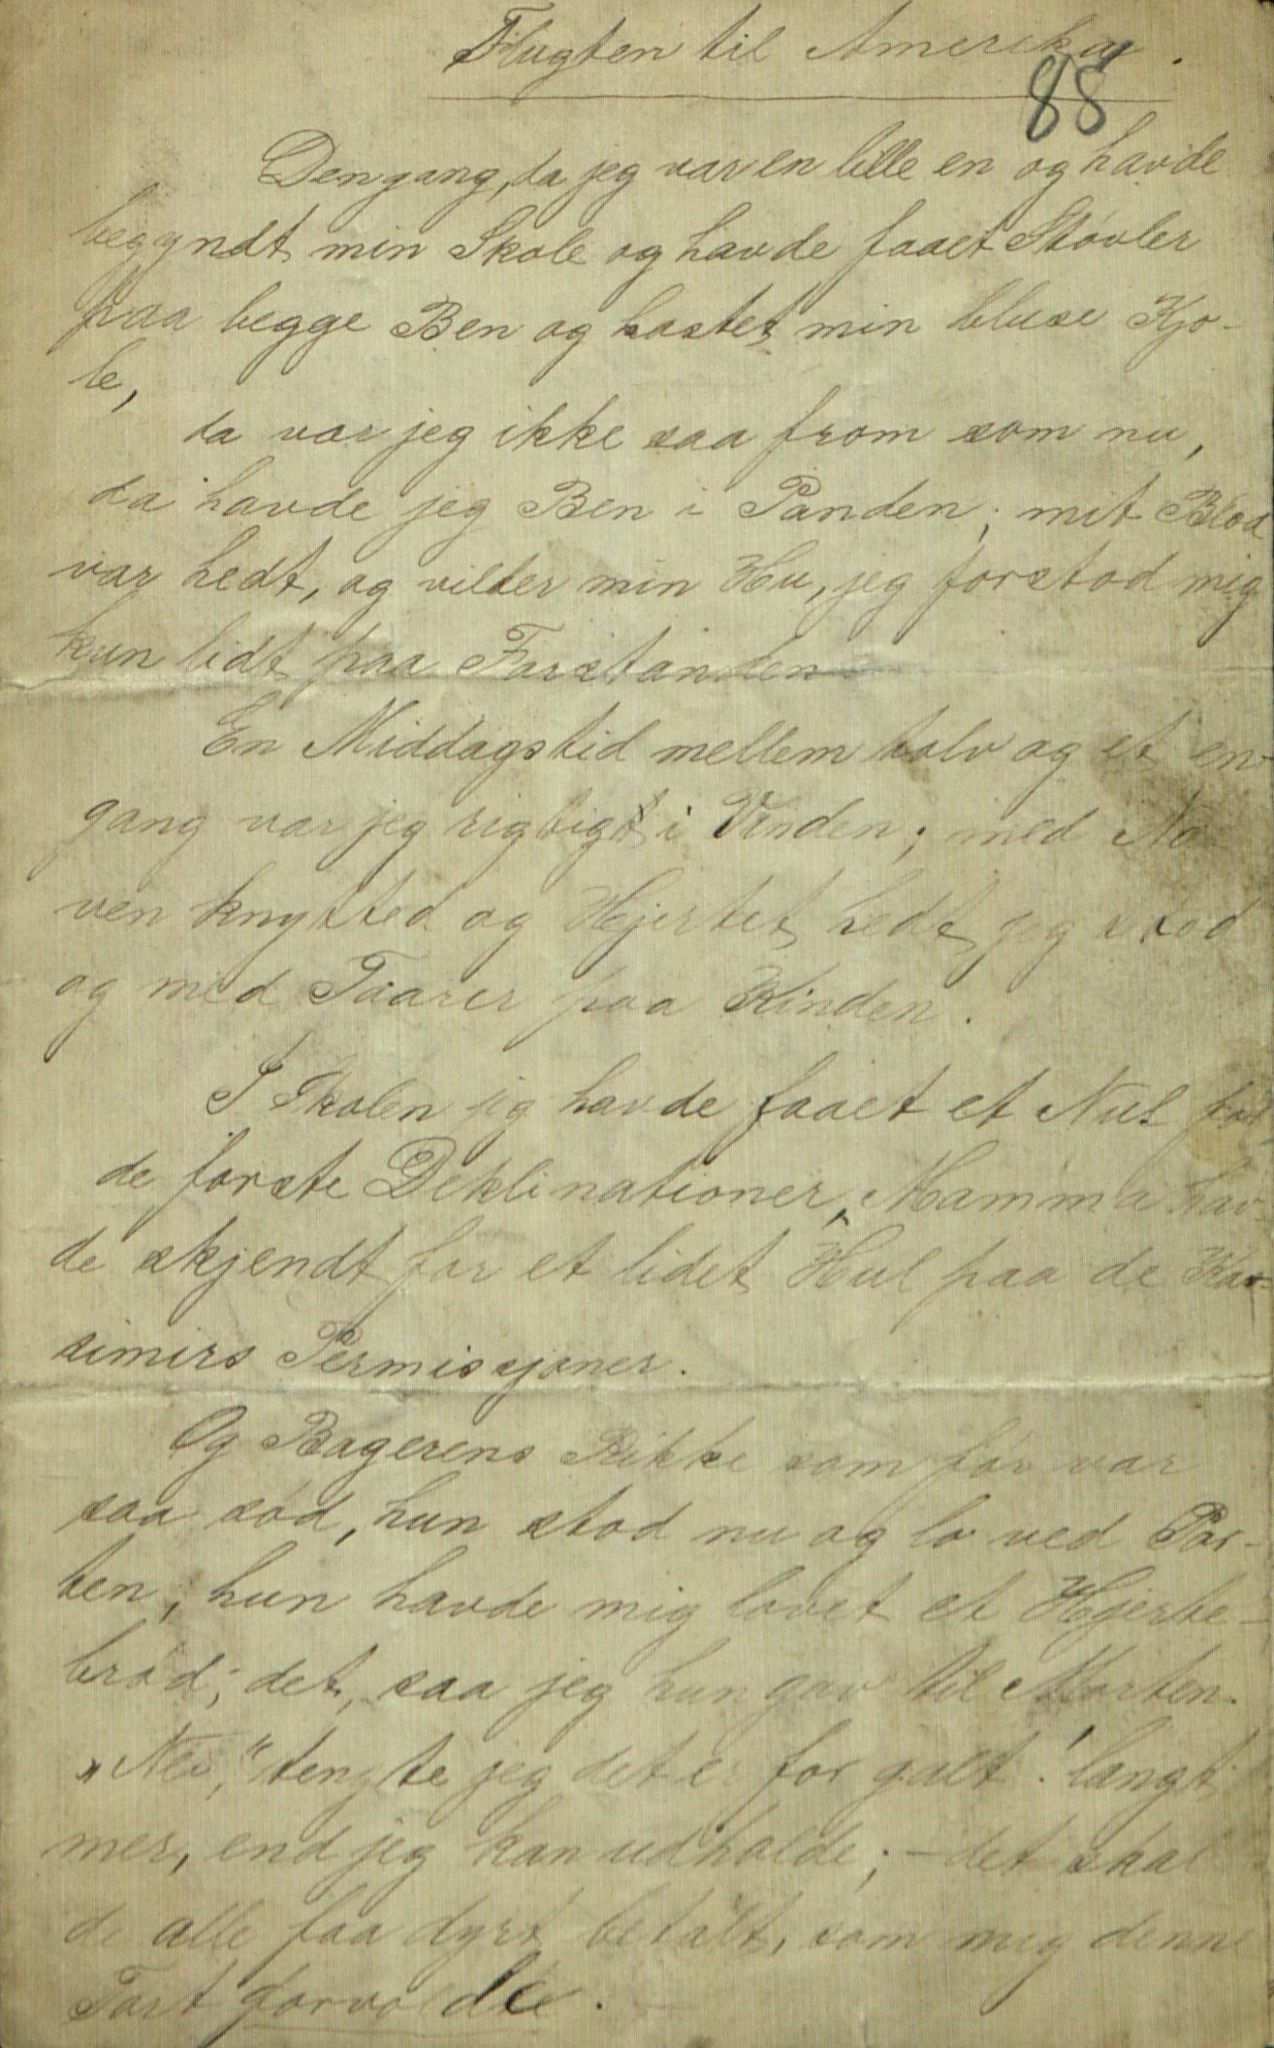 Flugten til Amerika.
88
Dengang, da jeg var en lille en og havde
begyndt min Skole og havde faaet Støvler
paa begge Ben og kastet min bluse Kjo-
le,
da var jeg ikke saa from som nu,
da havde jeg Ben i Panden; mit Blod
var hedt, og vilter min Hu, jeg forstod mig
kun lidt paa Forstanden
En Middagstid mellem tolv og et en-
gang var jeg rigtigt i Vinden; med Næ-
ven knytted og Hjertet hedt jeg stod
og med Taarer paa Kinden.
I Skolen jeg havde faaet et Nul for
de første Deklinationer, Mamma hav-
de skjendt for et lidet Hul paa de Ka-
simirs Permissjoner.
Og Bagerens Rikke som før var
saa sød, hun stod nu og lo ved Por-
ten; hun havde mig lovet et Hjerte-
brød; det, saa jeg hun gav til Morten.
„Nei," tengte jeg det er for galt! langt
mer, end jeg kan udholde; - det skal
de alle faa dyrt betalt, som mig denne
Tort forvoldte.